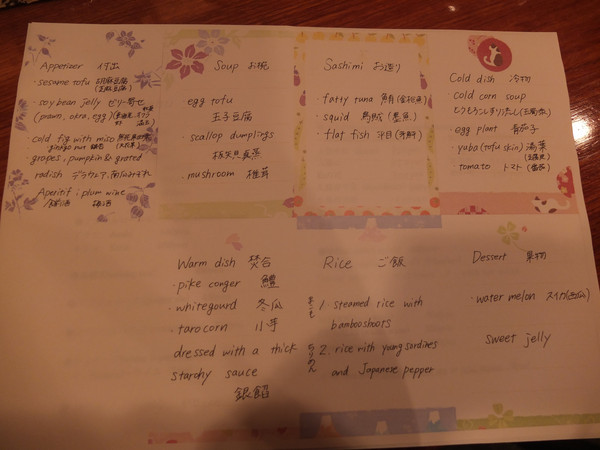 Appetizer 付出
・sesame tofu 胡麻豆腐
(芝麻豆腐)
・soy bean jelly ゼリー寄せ
(prawn, okra, egg)
・cold fig with miso
ginago nut 銀杏
・grapes, pumpkin & grated
radish デラウェア、南瓜みぞれ
Aperitif : plum wine
食前酒 梅酒
Soup お椀
egg tofu
玉子豆腐
・scallop dumplings
帆立真蒸
・mushroom 椎茸
Sashimi お造り
・fatty tuna 鮪
・squid 烏賊 (墨魚)
・flat fish 平目
Cold dish 冷物
・cold corn soup
とうもろこしすりながし
・egg plant 茄子
・yuba (tofu skin) 湯葉
・tomato トマト (番茄)
Warm dish 焚合
・pike conger 鱧
・whitegourd 冬瓜
・tarocorn 小芋
dressed with a thick
starchy sauce
銀餡
Rice ご飯
1. steamed rice with
bambooshoots
ちりめん 2. rice with young sardines
and Japanese pepper
Dessert 果物
・water melon スイカ (西瓜)
sweet jelly